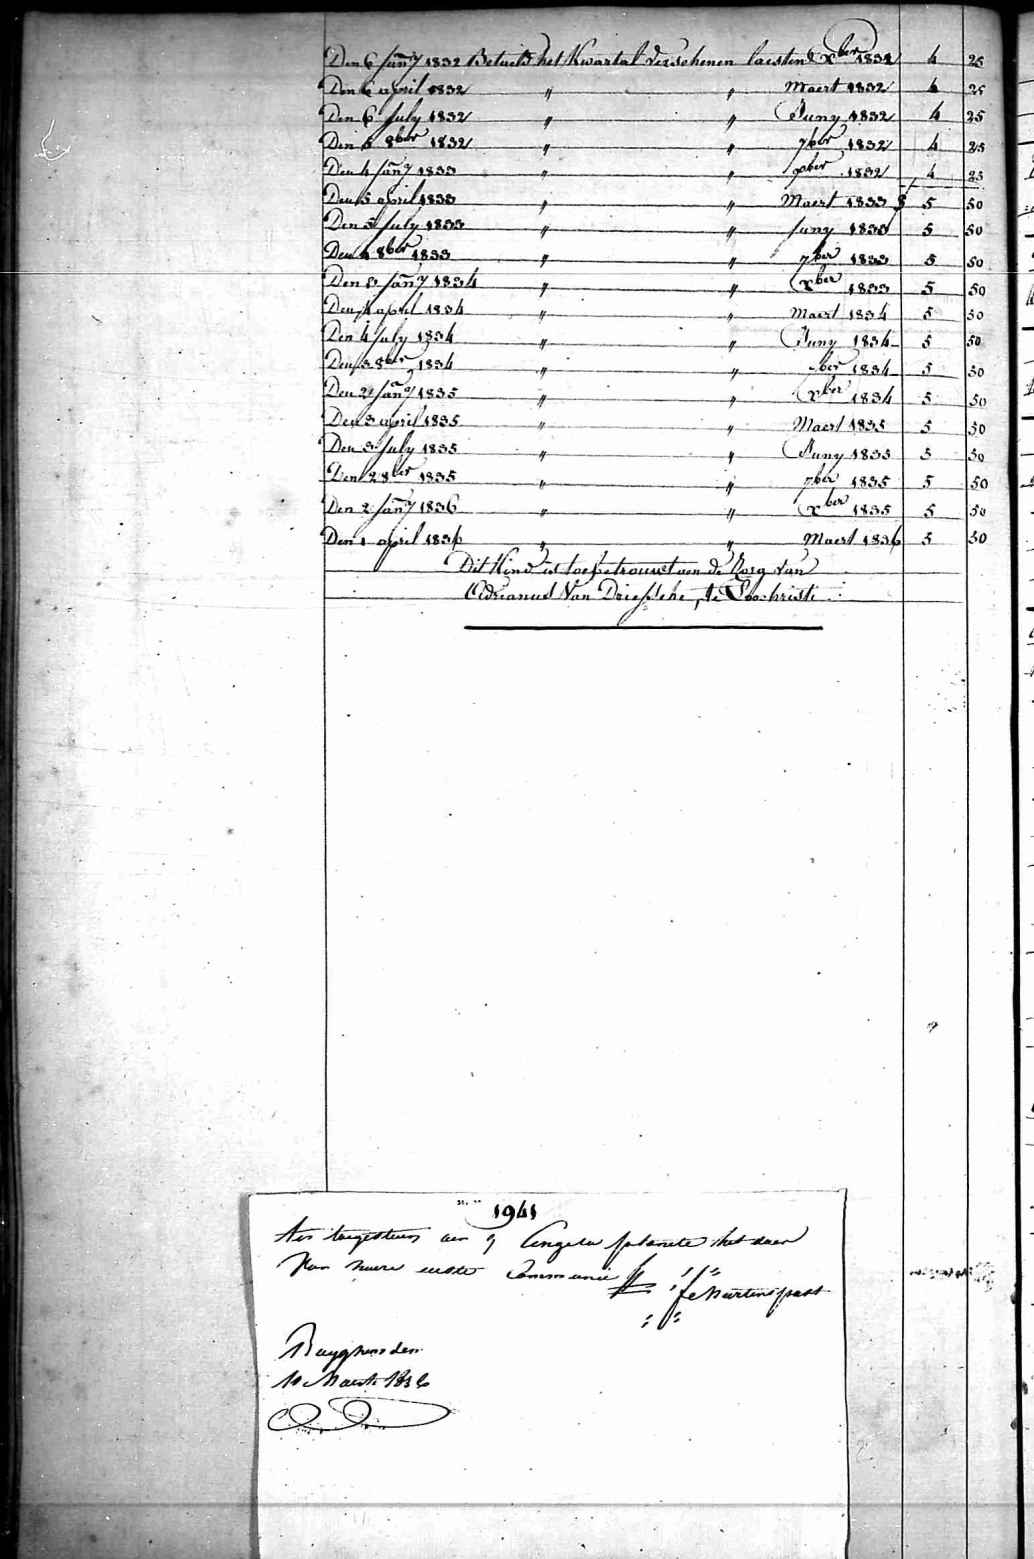 Den 6 Jan̄y 1832 Betaeld het Kwartal verschenen laesten Xber 1832 4 25
Den 6 april 1832 " " Maert 1832 4 25
Den 6 July 1832 " " Juny 1832 4 25
Den 5 8ber 1832 " " 7ber 1832 4 25
Den 4 Jan̄y 1833 " " Xber 1832 4 25
Den 5 april 1833 " " Maert 1833 5 50
Den 5 July 1833 " " Juny 1833 5 50
Den 4 8ber 1833 " " 7ber 1833 5 50
Den 3 Jan̄y 1834 " " Xber 1833 5 50
Den 4 april 1834 " " Maert 1834 5 50
Den 4 July 1834 " " Juny 1834 5 50
Den 3 8ber 1834 " " 7ber 1834 5 50
Den 2 Jan̄y 1835 " " Xber 1834 5 50
Den 3 april 1835 " " Maert 1835 5 50
Den 3 July 1835 " " Juny 1835 5 50
Den 2 8ber 1835 " " 7ber 1835 5 50
Den 2 Jan̄y 1836 " " Xber 1835 5 50
Den 1 april 1836 " " Maert 1836 5 50
Dit Kind is toebetrouwt aen de Zorg van
Adrianus Van Driessche, te Loochristi
1941
aen Angela het doen
Van haere eerste Communie
past
den
10 Maert 1836